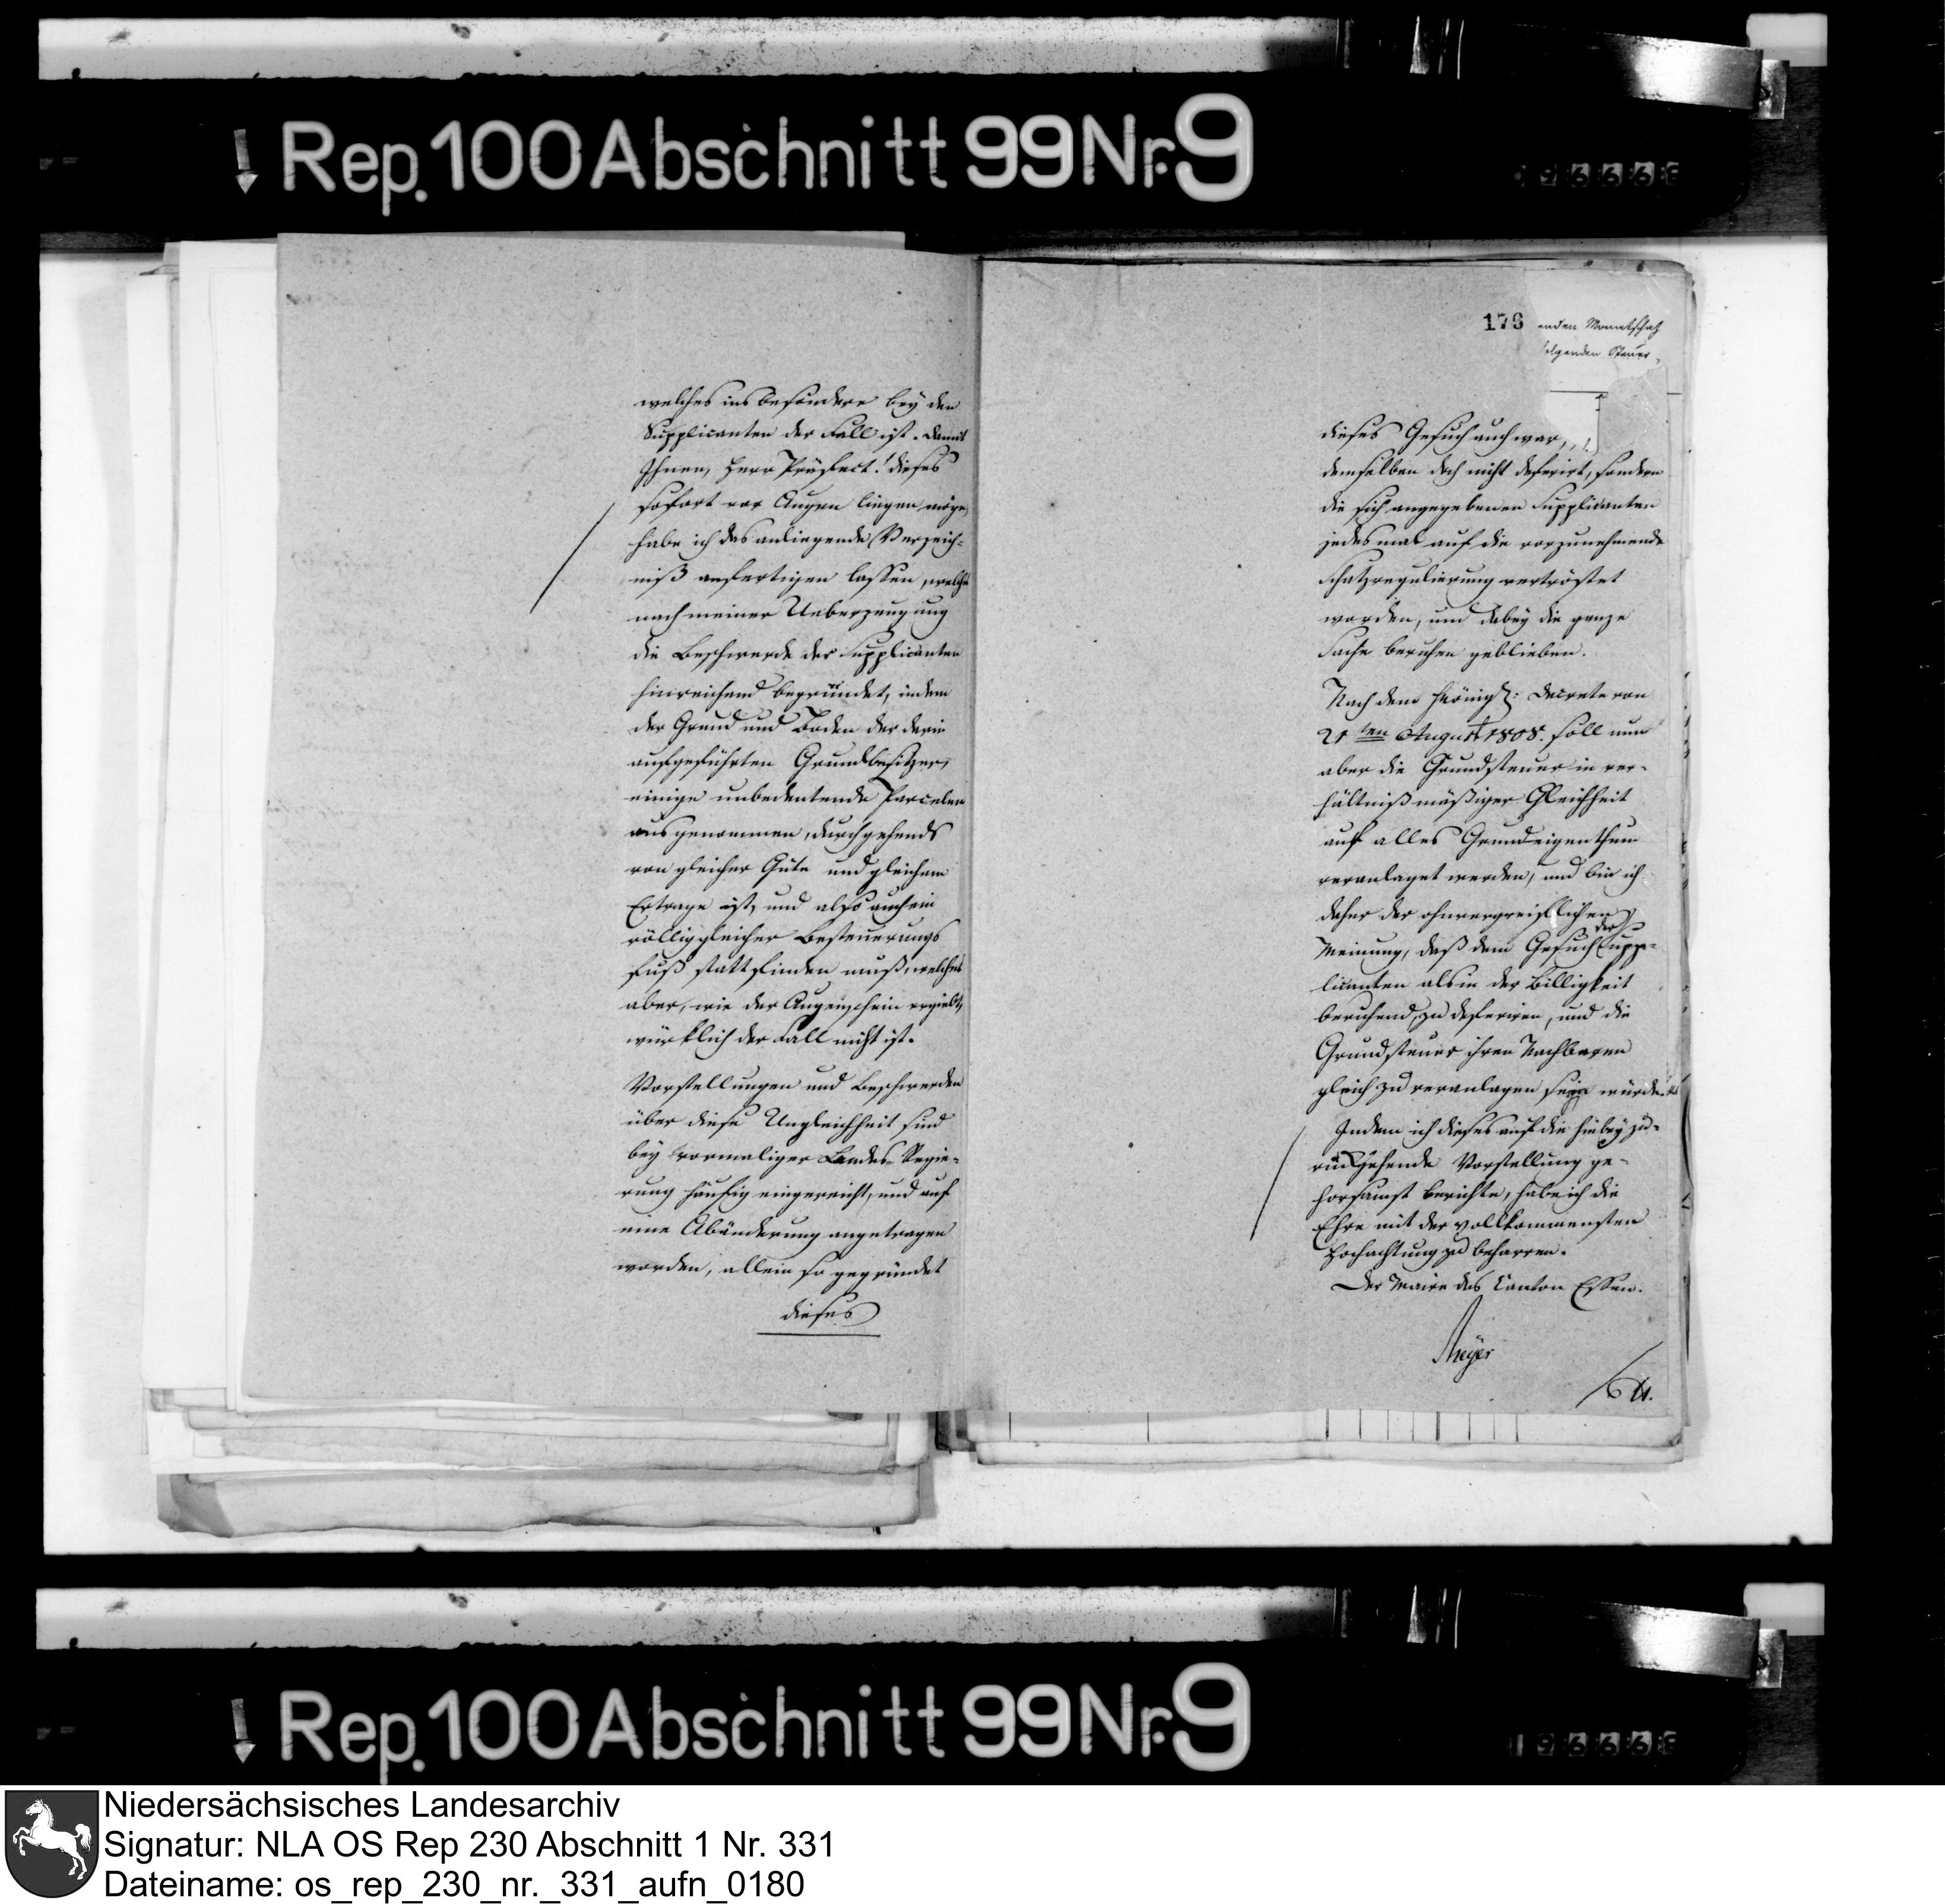 Rep. 100 Abschnitt 99 Nr. 9
welches ins besondere bey den
Supplicanten der Fall ist. Damit
Ihnen, Herr Präfect! dieses
sofort vor Augen liegen möge,
habe ich das anliegende Verzeich-
niß anfertigen lassen, welches
nach meiner Ueberzeugung
die Beschwerde der Supplicanten
hinreichend begründet, indem
der Grund und Boden der darin
aufgeführten Grundbesitzer,
einige unbedeutende Parcelen
ausgenommen, durchgehends
von gleicher Güte und gleichem
Ertrage ist, und also auch ein
völlig gleicher Besteuerungs
fuß stattfinden muß, welches
aber, wie der Augenschein ergiebt,
würklich der Fall nicht ist.
Vorstellungen und Beschwerden
über diese Ungleichheit sind
bey vormaliger Landes-Regie-
rung häufig eingereicht, und auf
eine Abänderung angetragen
worden, allein so gegründet
dieses
178
enden Monatschatz
folgenden Steuer-
dieses Gesuch auch war,
demselben doch nicht deferirt, sondern
die sich angegebenen Supplicanten
jedesmal auf die vorzunehmende
Schatzregulierung vertröstet
worden, und dabey die ganze
Sache beruhen geblieben.
Nach dem Königl: Decrete von
21ten August 1808. soll nun
aber die Grundsteuer in ver-
hältnißmäßiger Gleichheit
auf alles Grundeigenthum
veranlaget werden, und bin ich
daher der ohnvergreiflichen
Meinung, daß dem Gesuch der Supp-
licanten als in der Billigkeit
beruhend, zu deferiren, und die
Grundsteuer ihren Nachbaren
gleich zu veranlagen seyn würde.
Indem ich dieses auf die hiebey zu-
rückgehende Vorstellung ge-
horsamst berichte, habe ich die
Ehre mit der vollkommensten
Hochachtung zu beharren.
Der Maire des Canton Essen.
Meyer
Rep. 100 Abschnitt 99 Nr. 9
Niedersächsisches Landesarchiv
Signatur: NLA OS Rep 230 Abschnitt 1 Nr. 331
Dateiname: os_rep_230_nr._331_aufn_0180